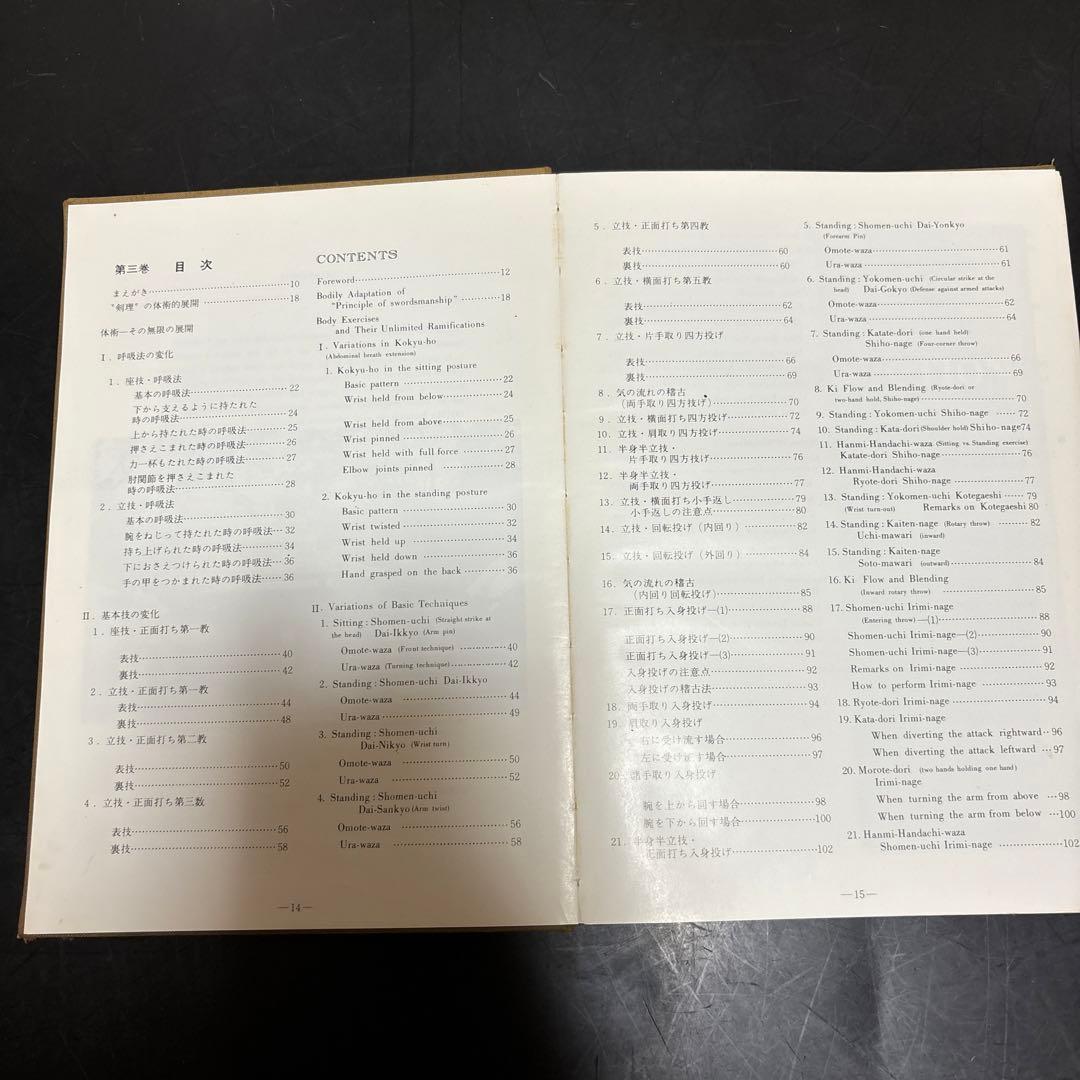 第三巻 目次
まえがき……10
"剣理"の体術的展開……18
体術―その無限の展開
Ⅰ. 呼吸法の変化
1. 座技・呼吸法
基本の呼吸法……22
下から支えるように持たれた
時の呼吸法……24
上から持たれた時の呼吸法……25
押さえこまれた時の呼吸法……26
力一杯もたれた時の呼吸法……27
肘関節を押さえこまれた
時の呼吸法……28
2. 立技・呼吸法
基本の呼吸法……30
腕をねじって持たれた時の呼吸法…32
持ち上げられた時の呼吸法……34
下におさえつけられた時の呼吸法…36
手の甲をつかまれた時の呼吸法……36
Ⅱ. 基本技の変化
1. 座技・正面打ち第一教
表技……40
裏技……42
2. 立技・正面打ち第一教
表技……44
裏技……48
3. 立技・正面打ち第二教
表技……50
裏技……52
4. 立技・正面打ち第三数
表技……56
裏技……58
CONTENTS
Foreword……12
Bodily Adaptation of
"Principle of swordsmanship"……18
Body Exercises
and Their Unlimited Ramifications
Ⅰ. Variations in Kokyu-ho
(Abdominal breath extension)
1. Kokyu-ho in the sitting posture
Basic pattern……22
Wrist held from below……24
Wrist held from above……25
Wrist pinned……26
Wrist held with full force……27
Elbow joints pinned……28
2. Kokyu-ho in the standing posture
Basic pattern……30
Wrist twisted……32
Wrist held up……34
Wrist held down……36
Hand grasped on the back……36
Ⅱ. Variations of Basic Techniques
1. Sitting : Shomen-uchi (Straight strike at
the head) Dai-Ikkyo (Arm pin)
Omote-waza (Front technique)……40
Ura-waza (Turning technique)……42
2. Standing : Shomen-uchi Dai-Ikkyo
Omote-waza……44
Ura-waza……49
3. Standing : Shomen-uchi
Dai-Nikyo (Wrist turn)
Omote-waza……50
Ura-waza……52
4. Standing : Shomen-uchi
Dai-Sankyo (Arm twist)
Omote-waza……56
Ura-waza……58
—14—
5. 立技・正面打ち第四教
表技……60
裏技……60
6. 立技・横面打ち第五教
表技……62
裏技……64
7. 立技・片手取り四方投げ
表技……66
裏技……69
8. 気の流れの稽古
(両手取り四方技げ)……70
9. 立技・横面打ち四方投げ……72
10. 立技・肩取り四方投げ……74
11. 半身半立技・
片手取り四方技げ……76
12. 半身半立技・
両手取り四方投げ……77
13. 立技・横面打ち小手返し……79
小手返しの注意点……80
14. 立技・回転投げ(内回り)……82
15. 立技・回転投げ(外回り)……84
16. 気の流れの稽古
(内回り回転投げ)……85
17. 正面打ち入身投げ―(1)……88
正面打ち入身投げ―(2)……90
正面打ち入身投げ―(3)……91
入身投げの注意点……92
入身投げの稽古法……93
18. 両手取り入身投げ……94
19. 肩取り入身投げ
右に受け流す場合……96
左に受け流す場合……97
20. 諸手取り入身投げ
腕を上から回す場合……98
腕を下から回す場合……100
21. 半身半立技・
正面打ち入身投げ……102
5. Standing : Shomen-uchi Dai-Yonkyo
(Forearm Pin)
Omote-waza……61
Ura-waza……61
6. Standing : Yokomen-uchi (Circular strike at the
head) Dai-Gokyo (Defense against armed attacks)
Omote-waza……62
Ura-waza……64
7. Standing : Katate-dori (one hand held)
Shiho-nage (Four-corner throw)
Omote-waza……66
Ura-waza……69
8. Ki Flow and Blending (Ryote-dori or
two-hand hold, Shiho-nage)……70
9. Standing : Yokomen-uchi Shiho-nage……72
10. Standing : Kata-dori (Shoulder hold) Shiho-nage74
11. Hanmi-Handachi-waza (Sitting vs. Standing exercise)
Katate-dori Shiho-nage……76
12. Hanmi-Handachi-waza
Ryote-dori Shiho-nage……77
13. Standing : Yokomen-uchi Kotegaeshi……79
(Wrist turn-out) Remarks on Kotegaeshi 80
14. Standing : Kaiten-nage (Rotary throw)……82
Uchi-mawari (inward)
15. Standing : Kaiten-nage
Soto-mawari (outward)……84
16. Ki Flow and Blending
(Inward rotary throw)……85
17. Shomen-uchi Irimi-nage
(Entering throw)—(1)……88
Shomen-uchi Irimi-nage—(2)……90
Shomen-uchi Irimi-nage—(3)……91
Remarks on Irimi-nage……92
How to perform Irimi-nage……93
18. Ryote-dori Irimi-nage……94
19. Kata-dori Irimi-nage
When diverting the attack rightward…96
When diverting the attack leftward…97
20. Morote-dori (two hands holding one hand)
Irimi-nage
When turning the arm from above…98
When turning the arm from below…100
21. Hanmi-Handachi-waza
Shomen-uchi Irimi-nage……102
—15—